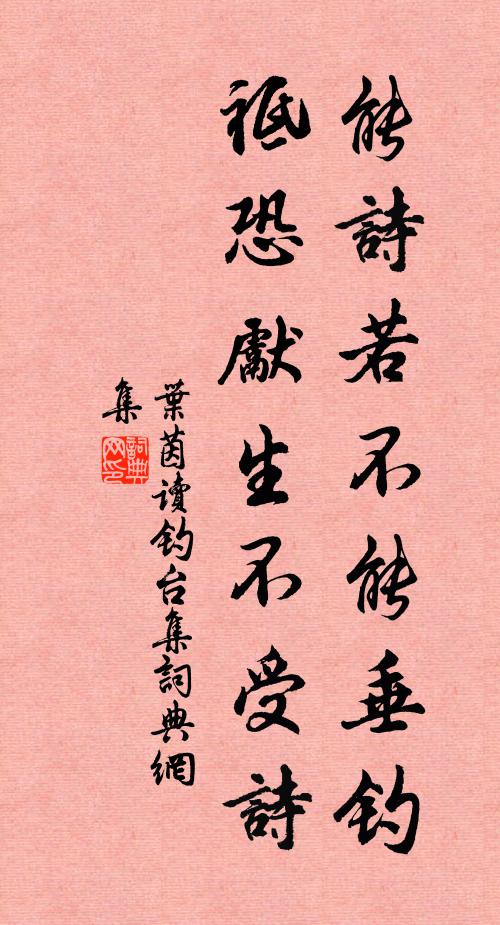 能詩若不能垂钓
祗恐獻生不受詩
葉茵讀钓台集詞典網
集
詞典网印